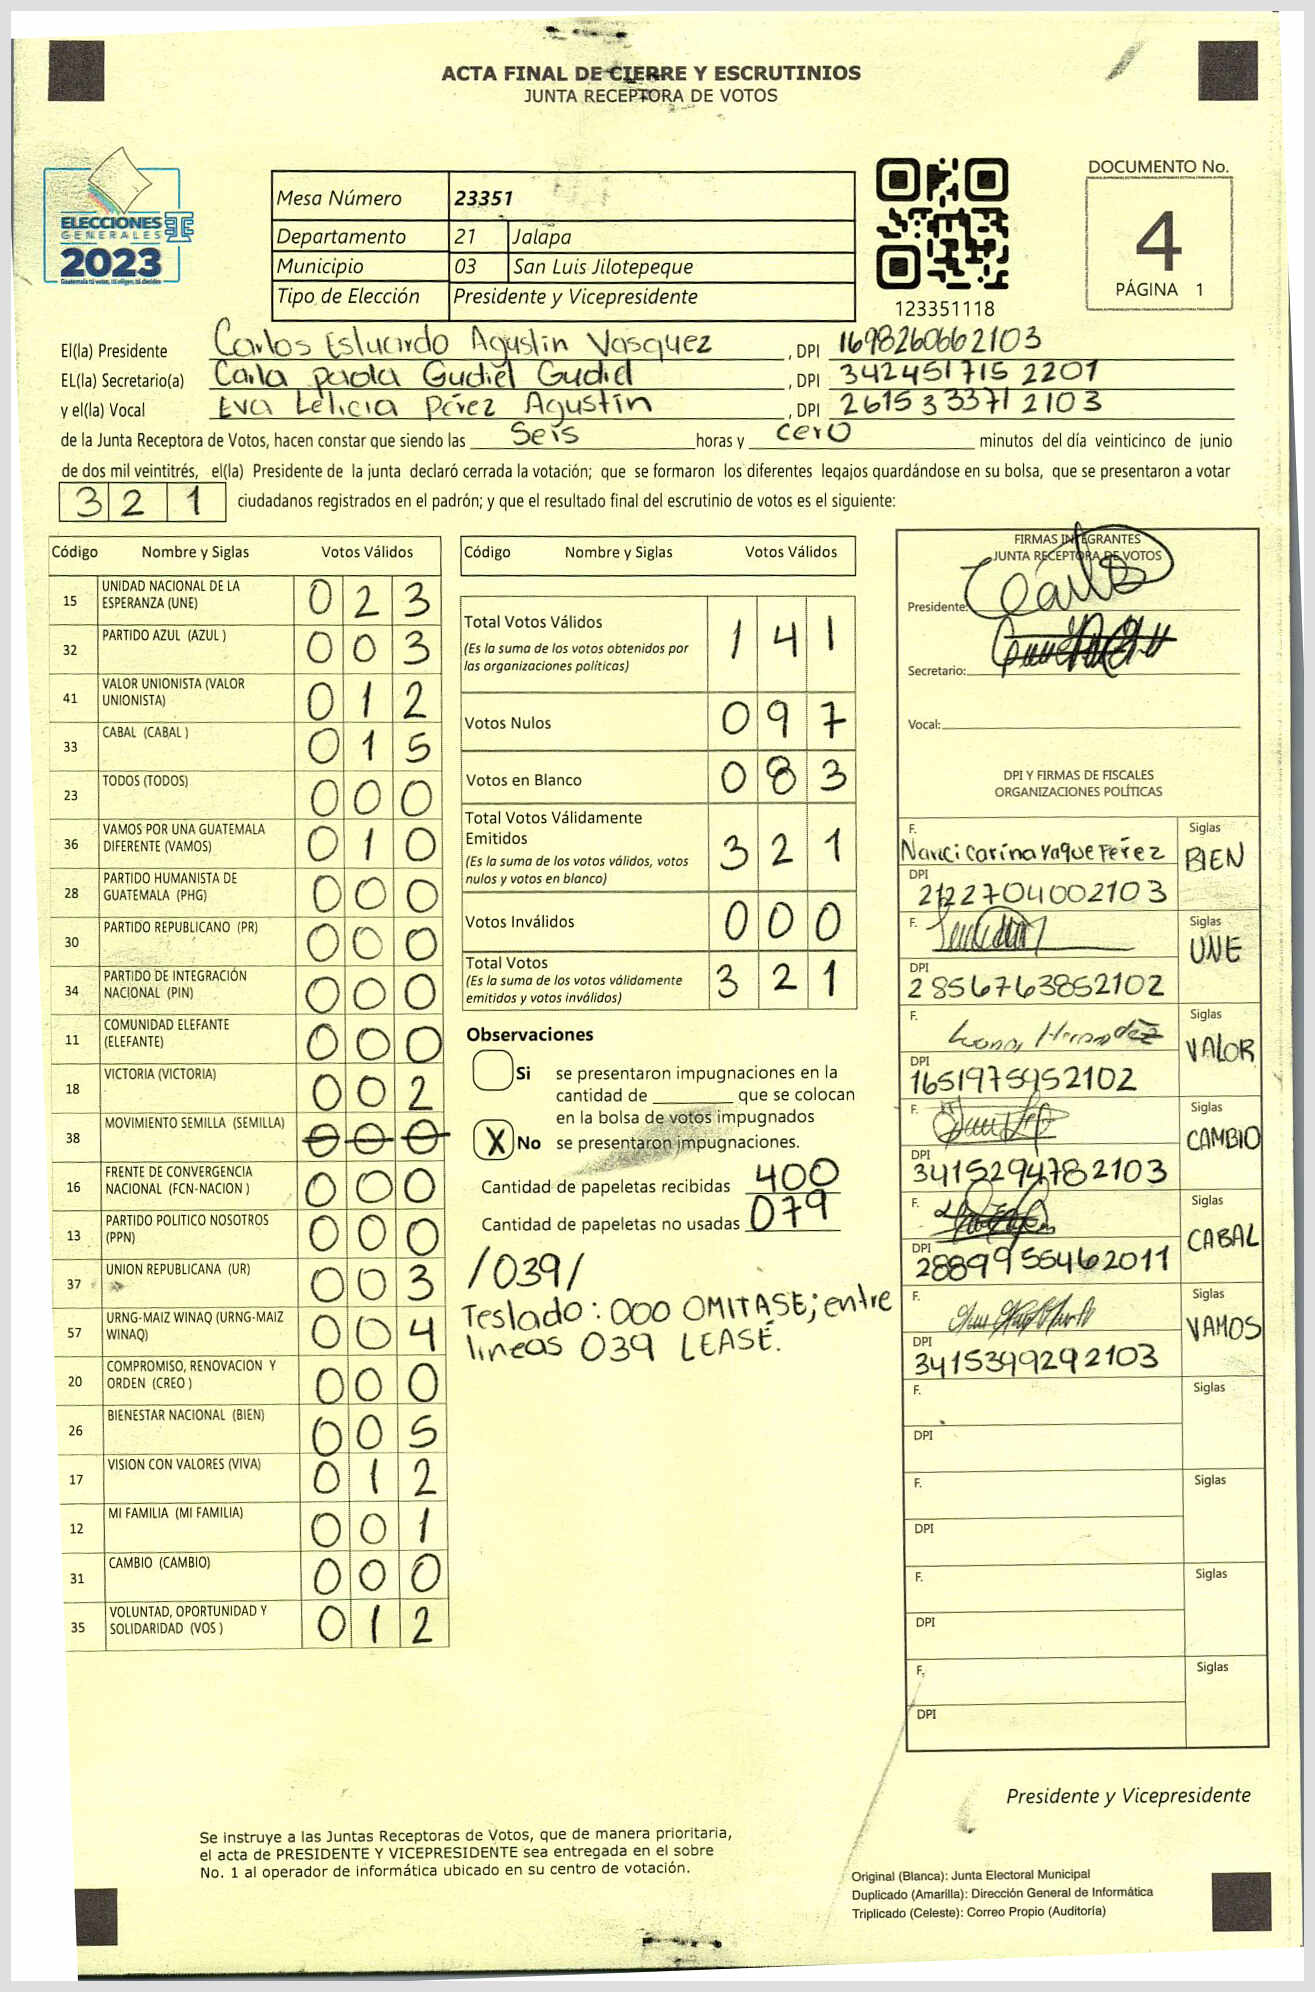 ACTA FINAL DE CIERRE Y ESCRUTINIOS
JUNTA RECEPTORA DE VOTOS
ELECCIONES
GENERALES
2023
Guatemala tú votas, tú eliges, tú decides
Mesa Número 23351
Departamento 21 Jalapa
Municipio 03 San Luis Jilotepeque
Tipo de Elección Presidente y Vicepresidente
123351118
DOCUMENTO No.
4
PÁGINA 1
El(la) Presidente Carlos Estuardo Agustin Vasquez , DPI 1698260662103
EL(la) Secretario(a) Carla paola Gudiel Gudiel , DPI 342451715 2201
y el(la) Vocal Eva Leticia Pérez Agustin , DPI 261533371 2103
de la Junta Receptora de Votos, hacen constar que siendo las seis horas y cero minutos del día veinticinco de junio
de dos mil veintitrés, el(la) Presidente de la junta declaró cerrada la votación; que se formaron los diferentes legajos guardándose en su bolsa, que se presentaron a votar
321 ciudadanos registrados en el padrón; y que el resultado final del escrutinio de votos es el siguiente:
Código Nombre y Siglas Votos Válidos
15 UNIDAD NACIONAL DE LA
ESPERANZA (UNE) 023
32 PARTIDO AZUL (AZUL ) 003
41 VALOR UNIONISTA (VALOR
UNIONISTA) 012
33 CABAL (CABAL ) 015
23 TODOS (TODOS) 000
36 VAMOS POR UNA GUATEMALA
DIFERENTE (VAMOS) 010
28 PARTIDO HUMANISTA DE
GUATEMALA (PHG) 000
30 PARTIDO REPUBLICANO (PR) 000
34 PARTIDO DE INTEGRACIÓN
NACIONAL (PIN) 000
11 COMUNIDAD ELEFANTE
(ELEFANTE) 000
18 VICTORIA (VICTORIA) 002
38 MOVIMIENTO SEMILLA (SEMILLA) 000
16 FRENTE DE CONVERGENCIA
NACIONAL (FCN-NACION ) 000
13 PARTIDO POLITICO NOSOTROS
(PPN) 000
37 UNION REPUBLICANA (UR) 003
57 URNG-MAIZ WINAQ (URNG-MAIZ
WINAQ) 004
20 COMPROMISO, RENOVACION Y
ORDEN (CREO ) 000
26 BIENESTAR NACIONAL (BIEN) 005
17 VISION CON VALORES (VIVA) 012
12 MI FAMILIA (MI FAMILIA) 001
31 CAMBIO (CAMBIO) 000
35 VOLUNTAD, OPORTUNIDAD Y
SOLIDARIDAD (VOS ) 012
Código Nombre y Siglas Votos Válidos
Total Votos Válidos 141
(Es la suma de los votos obtenidos por
las organizaciones políticas)
Votos Nulos 097
Votos en Blanco 083
Total Votos Válidamente
Emitidos 321
(Es la suma de los votos válidos, votos
nulos y votos en blanco)
Votos Inválidos 000
Total Votos 321
(Es la suma de los votos válidamente
emitidos y votos inválidos)
Observaciones
Si se presentaron impugnaciones en la
cantidad de que se colocan
en la bolsa de votos impugnados
X No se presentaron impugnaciones.
Cantidad de papeletas recibidas 400
Cantidad de papeletas no usadas 079
/039/
Teslado: 000 OMITASE; entre
lineas 039 LEASE.
FIRMAS INTEGRANTES
JUNTA RECEPTORA DE VOTOS
Presidente: Carlos
Secretario:
Vocal:
DPI Y FIRMAS DE FISCALES
ORGANIZACIONES POLÍTICAS
F. Siglas
Nanci Carina Yaque Pérez BIEN
DPI
2122704002103
F. Siglas
UNE
DPI
2856763852102
F. Siglas
VALOR
DPI
1651975952102
F. Siglas
CAMBIO
DPI
3415294782103
F. Siglas
CABAL
DPI
2889955462011
F. Siglas
VAMOS
DPI
3415399292103
F. Siglas
DPI
F. Siglas
DPI
F. Siglas
DPI
F. Siglas
DPI
Presidente y Vicepresidente
Se instruye a las Juntas Receptoras de Votos, que de manera prioritaria,
el acta de PRESIDENTE Y VICEPRESIDENTE sea entregada en el sobre
No. 1 al operador de informática ubicado en su centro de votación.
Original (Blanca): Junta Electoral Municipal
Duplicado (Amarilla): Dirección General de Informática
Triplicado (Celeste): Correo Propio (Auditoría)